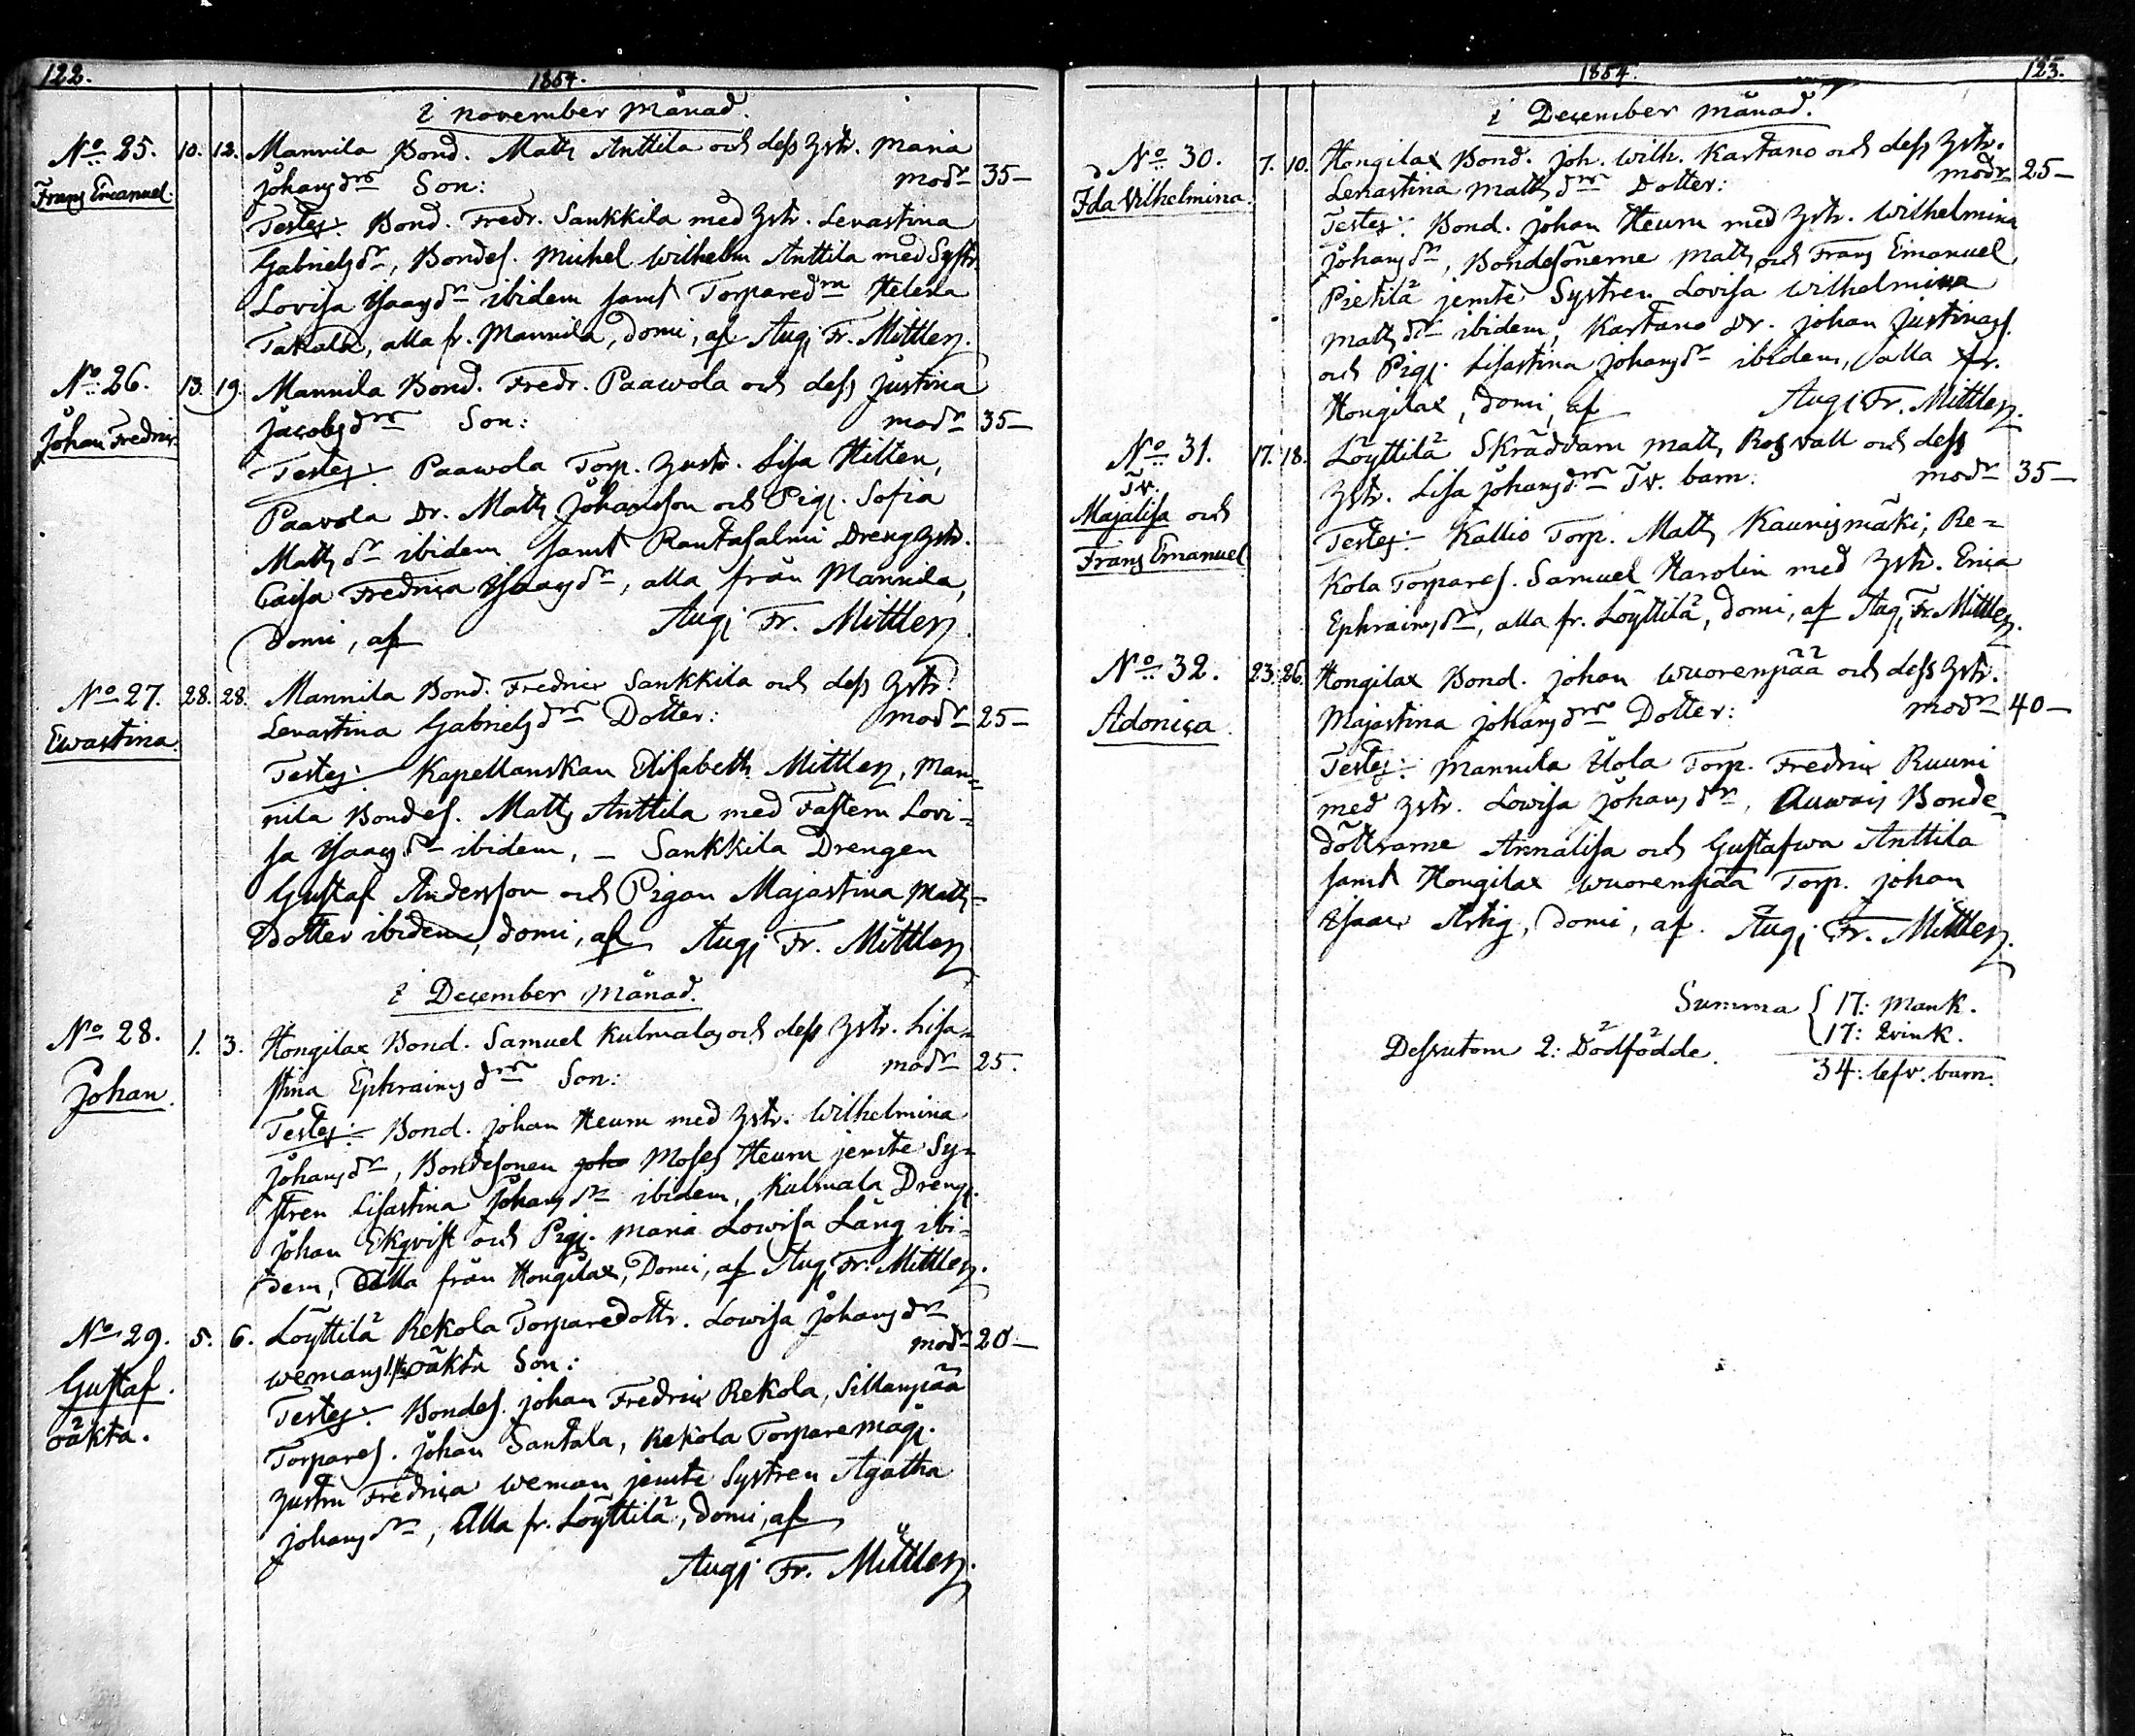 122.
1854.
i November Månad.
No 25. 10. 12. Mannila Bond. Matts Anttila och dess Hstr. Maria
Frans Emanuel. Johansdrs Son: modr 35—
Testes: Bond. Fredr. Sankkila med Hstr. Lenastina
Gabrielsdr, Bondes. Michel Wilhelm Anttila med Systr.
Lovisa Isaacsdr ibidem samt Torparedrn Helena
Takala, alla fr. Mannila, domi, af Aug. Fr. Mittler.
No 26. 13. 19. Mannila Bond. Fredr. Paawola och dess Justina
Johan Fredric Jacobsdrs Son: modr 35—
Testes: Paawola Torp. Hustr. Lisa Hilten,
Paavola Dr. Matts Johansson och Pig. Sofia
Mattsdr ibidem samt Rantasalmi Dreng Hstr.
Caisa Fredrica Isaacsdr, alla från Mannila,
Domi, af Aug. Fr. Mittler.
No 27. 28. 28. Mannila Bond. Fredric Sankkila och dess Hstr.
Ewastina Lenastina Gabrielsdrs Dotter: modr 25—
Testes: Kapellanskan Elisabeth Mittler, Man-
nila Bondes. Matts Anttila med Fastern Lovi-
sa Isaacsdr ibidem, — Sankkila Drengen
Gustaf Andersson och Pigan Majastina Matts-
Dotter ibidem, domi, af Aug. Fr. Mittler.
i December Månad.
No 28. 1. 3. Hongilax Bond. Samuel Kulmala och dess Hstr. Lisa-
Johan. stina Ephraimsdrs Son: modr 25.
Testes: Bond. Johan Heurn med Hstr. Wilhelmina
Johansdr, Bondesonen Moses Heurn jemte Sy-
stren Lisastina Johansdr ibidem, Kulmala Dreng.
Johan Ekqvist och Pig. Maria Lowisa Lång ibi-
dem, Alla från Hongilax, Domi, af Aug. Fr. Mittler.
No 29. 5. 6. Löyttilä Rekola Torparedottr. Lowisa Johansdr
Gustaf. Wemans oäkta Son: modr 20—
oäkta. Testes: Bondes. Johan Fredric Rekola, Sillanpää
Torpares. Johan Santala, Rekola Torparemåg.
Hustru Fredrica Weman jemte Systren Agatha
Johansdr, Alla fr. Löyttilä, domi, af
Aug. Fr. Mittler.
1854.
123.
i December Månad.
No 30. 7. 10. Hongilax Bond. Joh. Wilh. Kartano och dess Hstr.
Ida Vilhelmina. Lenastina Mattsdrs Dotter: modr 25—
Testes: Bond. Johan Heurn med Hstr. Wilhelmina
Johansdr, Bondesönerne Matts och Frans Emanuel
Pietilä jemte Systren Lovisa Wilhelmina
Mattsdr ibidem, Kartano Dr. Johan Justinas.
och Pig. Lisastina Johansdr ibidem, alla fr.
Hongilax, Domi, af Aug. Fr. Mittler.
No 31. 17. 18. Löyttilä Skräddarn Matts Rosvall och dess
Tv. Hstr. Lisa Johansdrs Tv. barn: modr 35—
Majalisa och Testes: Kallio Torp. Matts Kaunismäki, Re-
Frans Emanuel kola Torpares. Samuel Harolin med Hstr. Erica
Ephraimsdr, alla fr. Löyttilä, domi, af Aug. Fr. Mittler.
No 32. 23. 26. Hongilax Bond. Johan Wuorenpää och dess Hstr.
Adonica Majastina Johansdrs Dotter: modr 40—
Testes: Mannila Uola Torp. Fredric Ruuni
med Hstr. Lowisa Johansdr, Auwais Bonde-
döttrarne Annalisa och Gustafwa Anttila
samt Hongilax Wuorenpää Torp. Johan
Isaac Artig, Domi, af. Aug. Fr. Mittler.
Summa { 17: Mank.
17: Qvink.
Dessutom 2: Dödfödde.
34: lefv. barn.